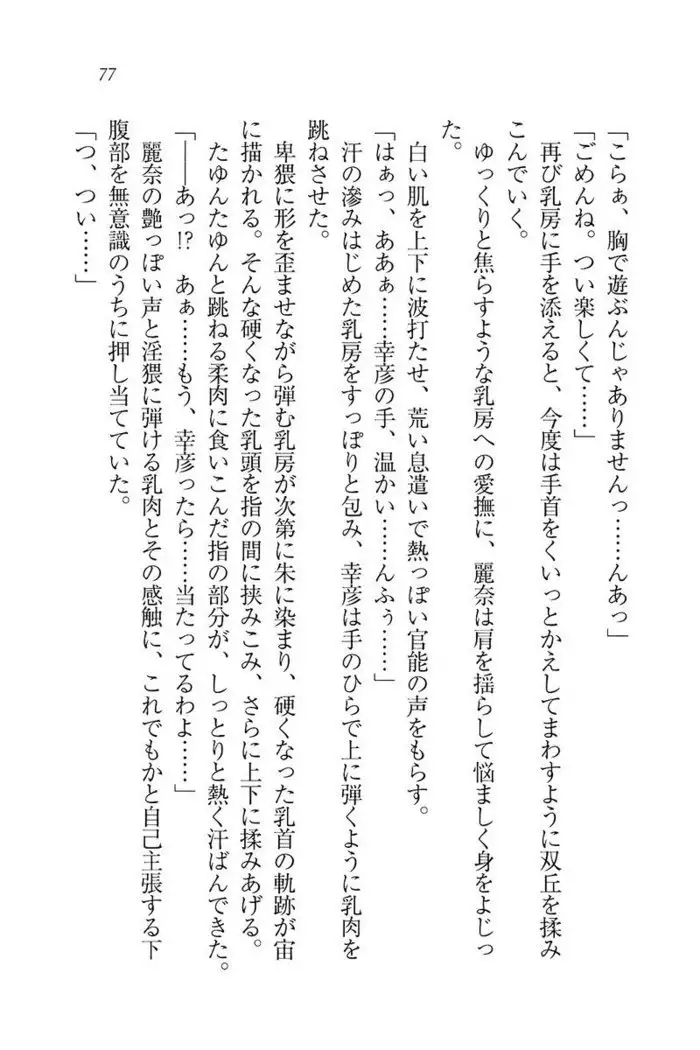 77
「こらぁ、胸で遊ぶんじゃありませんっ……んあっ」
「ごめんね。つい楽しくて……」
再び乳房に手を添えると、今度は手首をくいっとかえしてまわすように双丘を揉み
こんでいく。
ゆっくりと焦らすような乳房への愛撫に、麗奈は肩を揺らして悩ましく身をよじっ
た。
白い肌を上下に波打たせ、荒い息遣いで熱っぽい官能の声をもらす。
「はぁっ、ああぁ……幸彦の手、温かい……んふぅ……」
汗の滲みはじめた乳房をすっぽりと包み、幸彦は手のひらで上に弾くように乳肉を
跳ねさせた。
卑猥に形を歪ませながら弾む乳房が次第に朱に染まり、硬くなった乳首の軌跡が宙
に描かれる。そんな硬くなった乳頭を指の間に挟みこみ、さらに上下に揉みあげる。
たゆんたゆんと跳ねる柔肉に食いこんだ指の部分が、しっとりと熱く汗ばんできた。
「――あっ!?　あぁ……もう、幸彦ったら……当たってるわよ……」
麗奈の艶っぽい声と淫猥に弾ける乳肉とその感触に、これでもかと自己主張する下
腹部を無意識のうちに押し当てていた。
「つ、つい……」